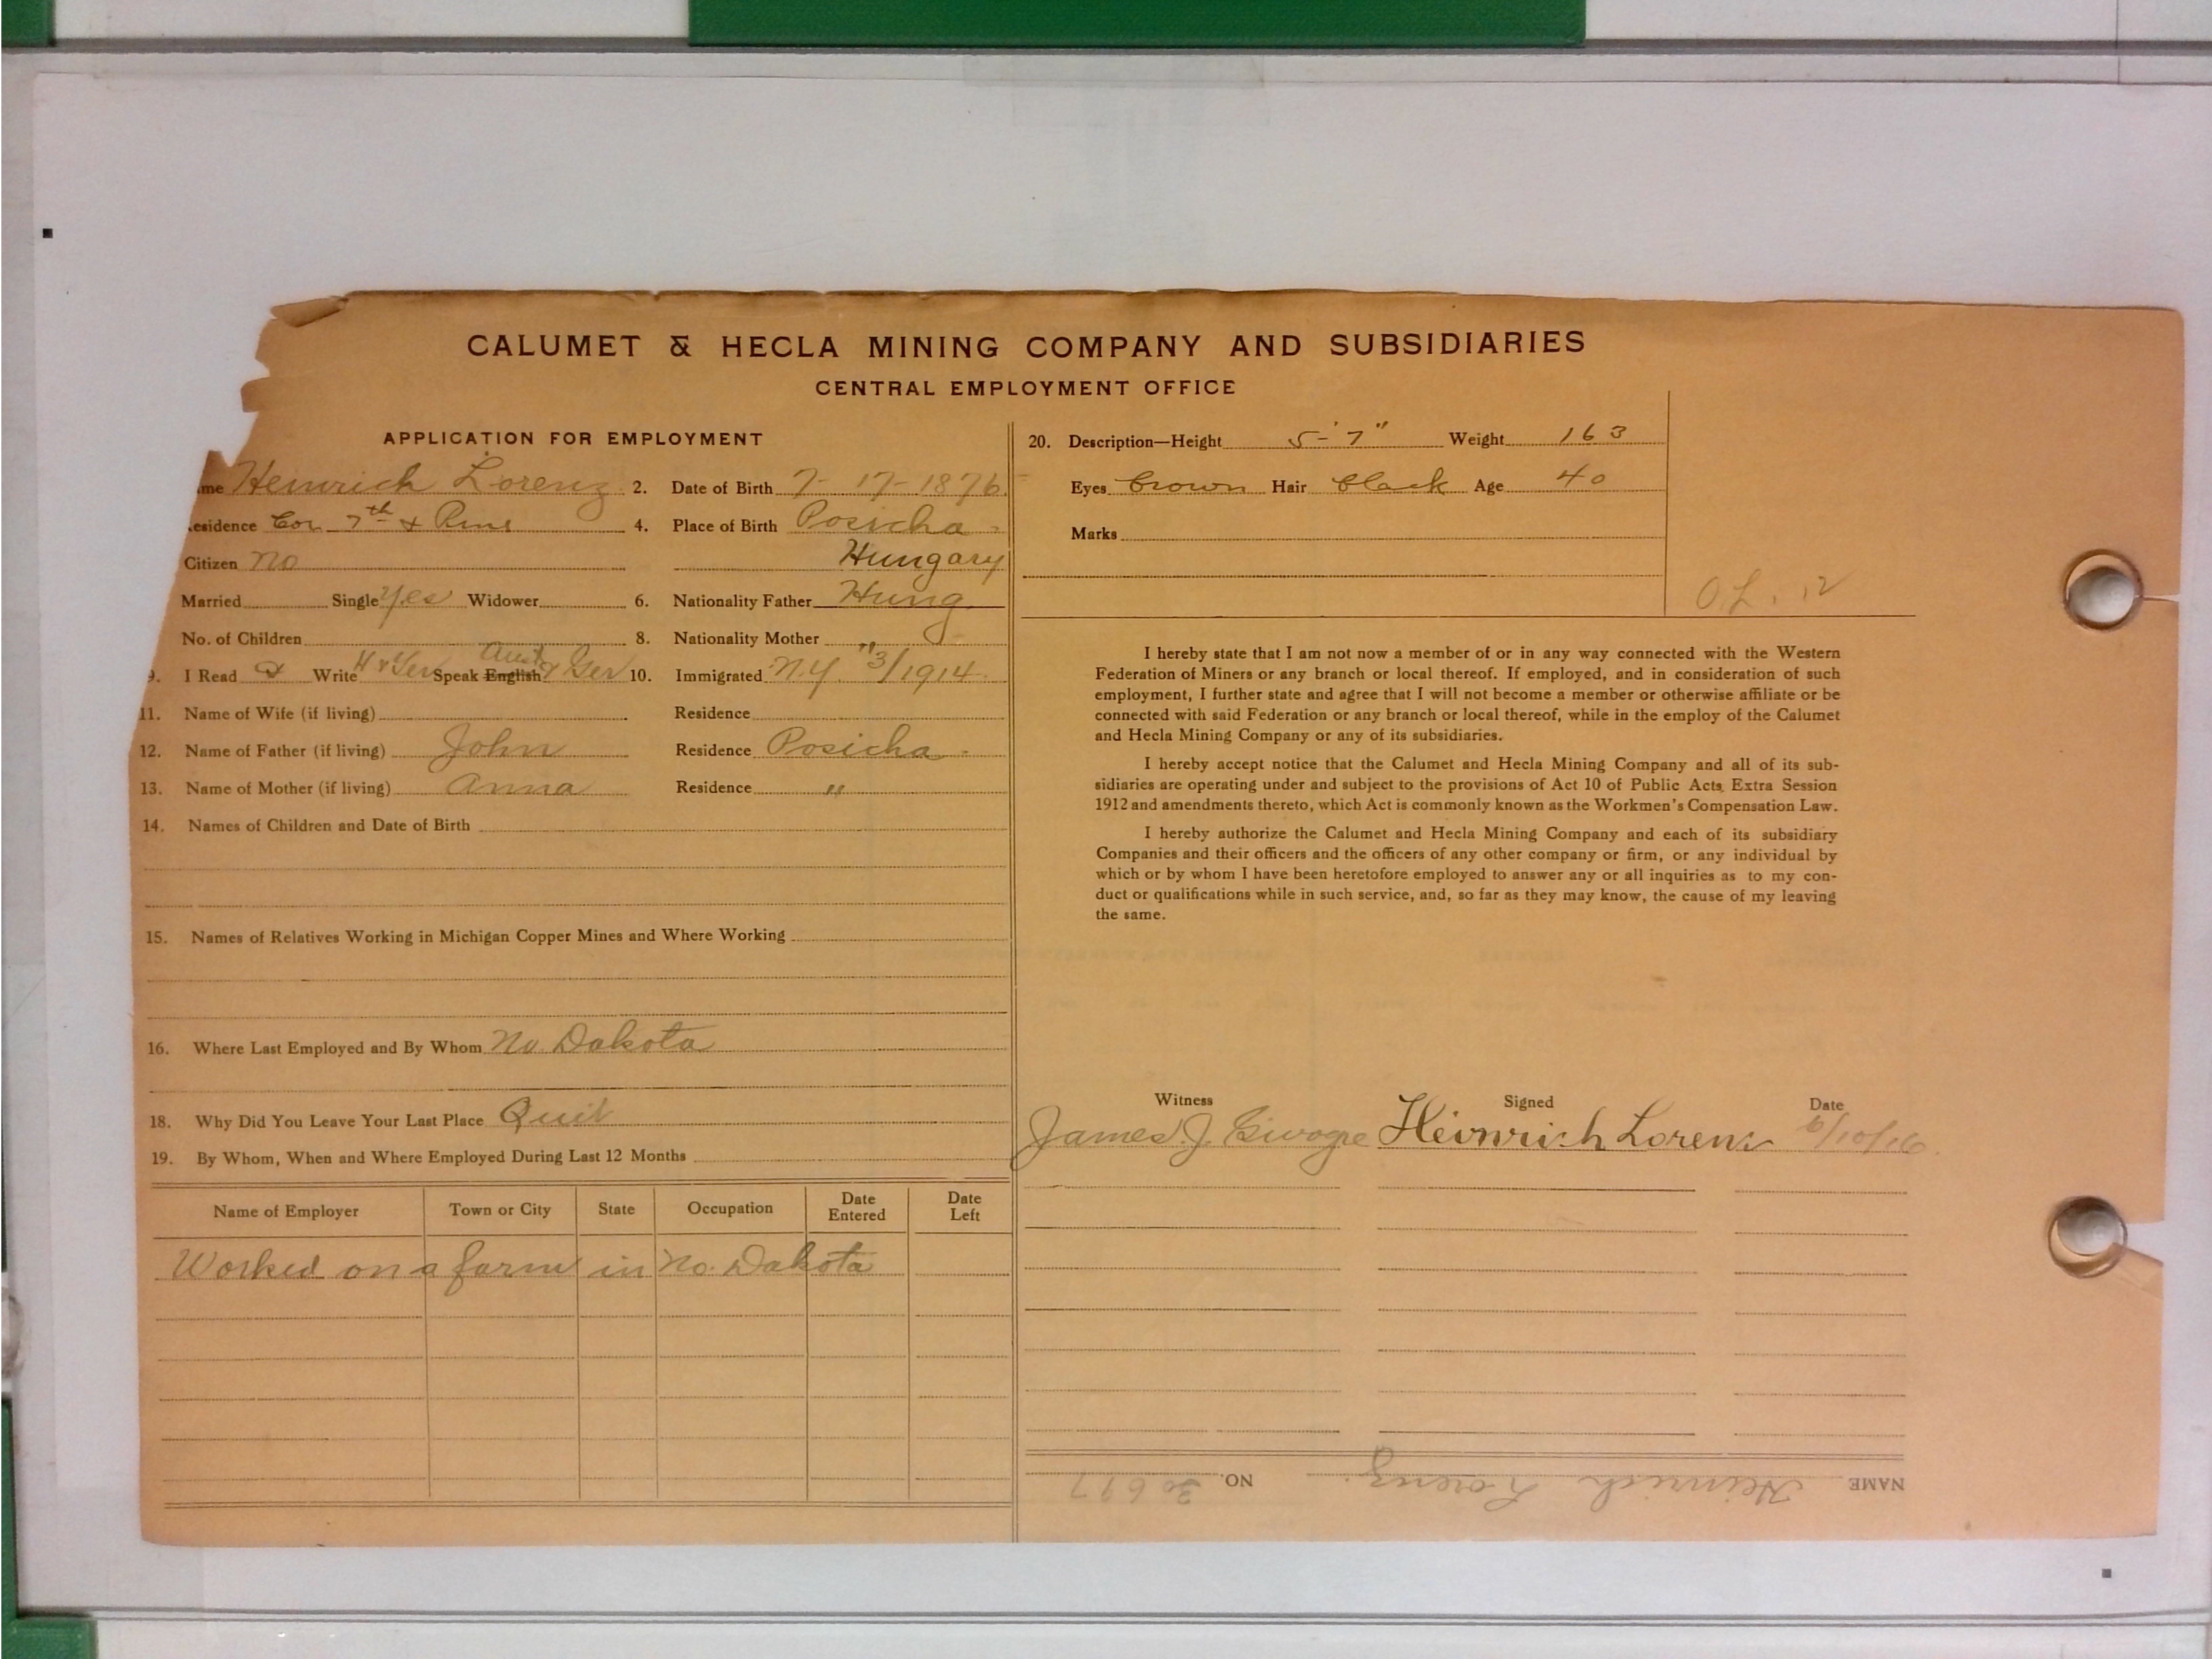 CALUMET & HECLA MINING COMPANY AND SUBSIDIARIES
CENTRAL EMPLOYMENT OFFICE
APPLICATION FOR EMPLOYMENT
me Heinrich Lorenz 2. Date of Birth 7-17-1876
esidence Cor 7th & Pine 4. Place of Birth Posicha
Citizen no Hungary
Married Single Yes Widower 6. Nationality Father Hung
No. of Children 8. Nationality Mother "
9. I Read & Write H & Ger Speak English Aust & Ger 10. Immigrated N.Y. 3/1914
11. Name of Wife (if living) Residence
12. Name of Father (if living) John Residence Posicha
13. Name of Mother (if living) Anna Residence "
14. Names of Children and Date of Birth
15. Names of Relatives Working in Michigan Copper Mines and Where Working
16. Where Last Employed and By Whom No. Dakota
18. Why Did You Leave Your Last Place Quit
19. By Whom, When and Where Employed During Last 12 Months
Name of Employer Town or City State Occupation Date Entered Date Left
Worked on a farm in No. Dakota
20. Description—Height 5-7" Weight 163
Eyes brown Hair black Age 40
Marks
O.L. 12
I hereby state that I am not now a member of or in any way connected with the Western
Federation of Miners or any branch or local thereof. If employed, and in consideration of such
employment, I further state and agree that I will not become a member or otherwise affiliate or be
connected with said Federation or any branch or local thereof, while in the employ of the Calumet
and Hecla Mining Company or any of its subsidiaries.
I hereby accept notice that the Calumet and Hecla Mining Company and all of its sub-
sidiaries are operating under and subject to the provisions of Act 10 of Public Acts, Extra Session
1912 and amendments thereto, which Act is commonly known as the Workmen's Compensation Law.
I hereby authorize the Calumet and Hecla Mining Company and each of its subsidiary
Companies and their officers and the officers of any other company or firm, or any individual by
which or by whom I have been heretofore employed to answer any or all inquiries as to my con-
duct or qualifications while in such service, and, so far as they may know, the cause of my leaving
the same.
Witness Signed Date
James J. Heinrich Lorenz 6/10/16
NAME Heinrich Lorenz. NO. 30697